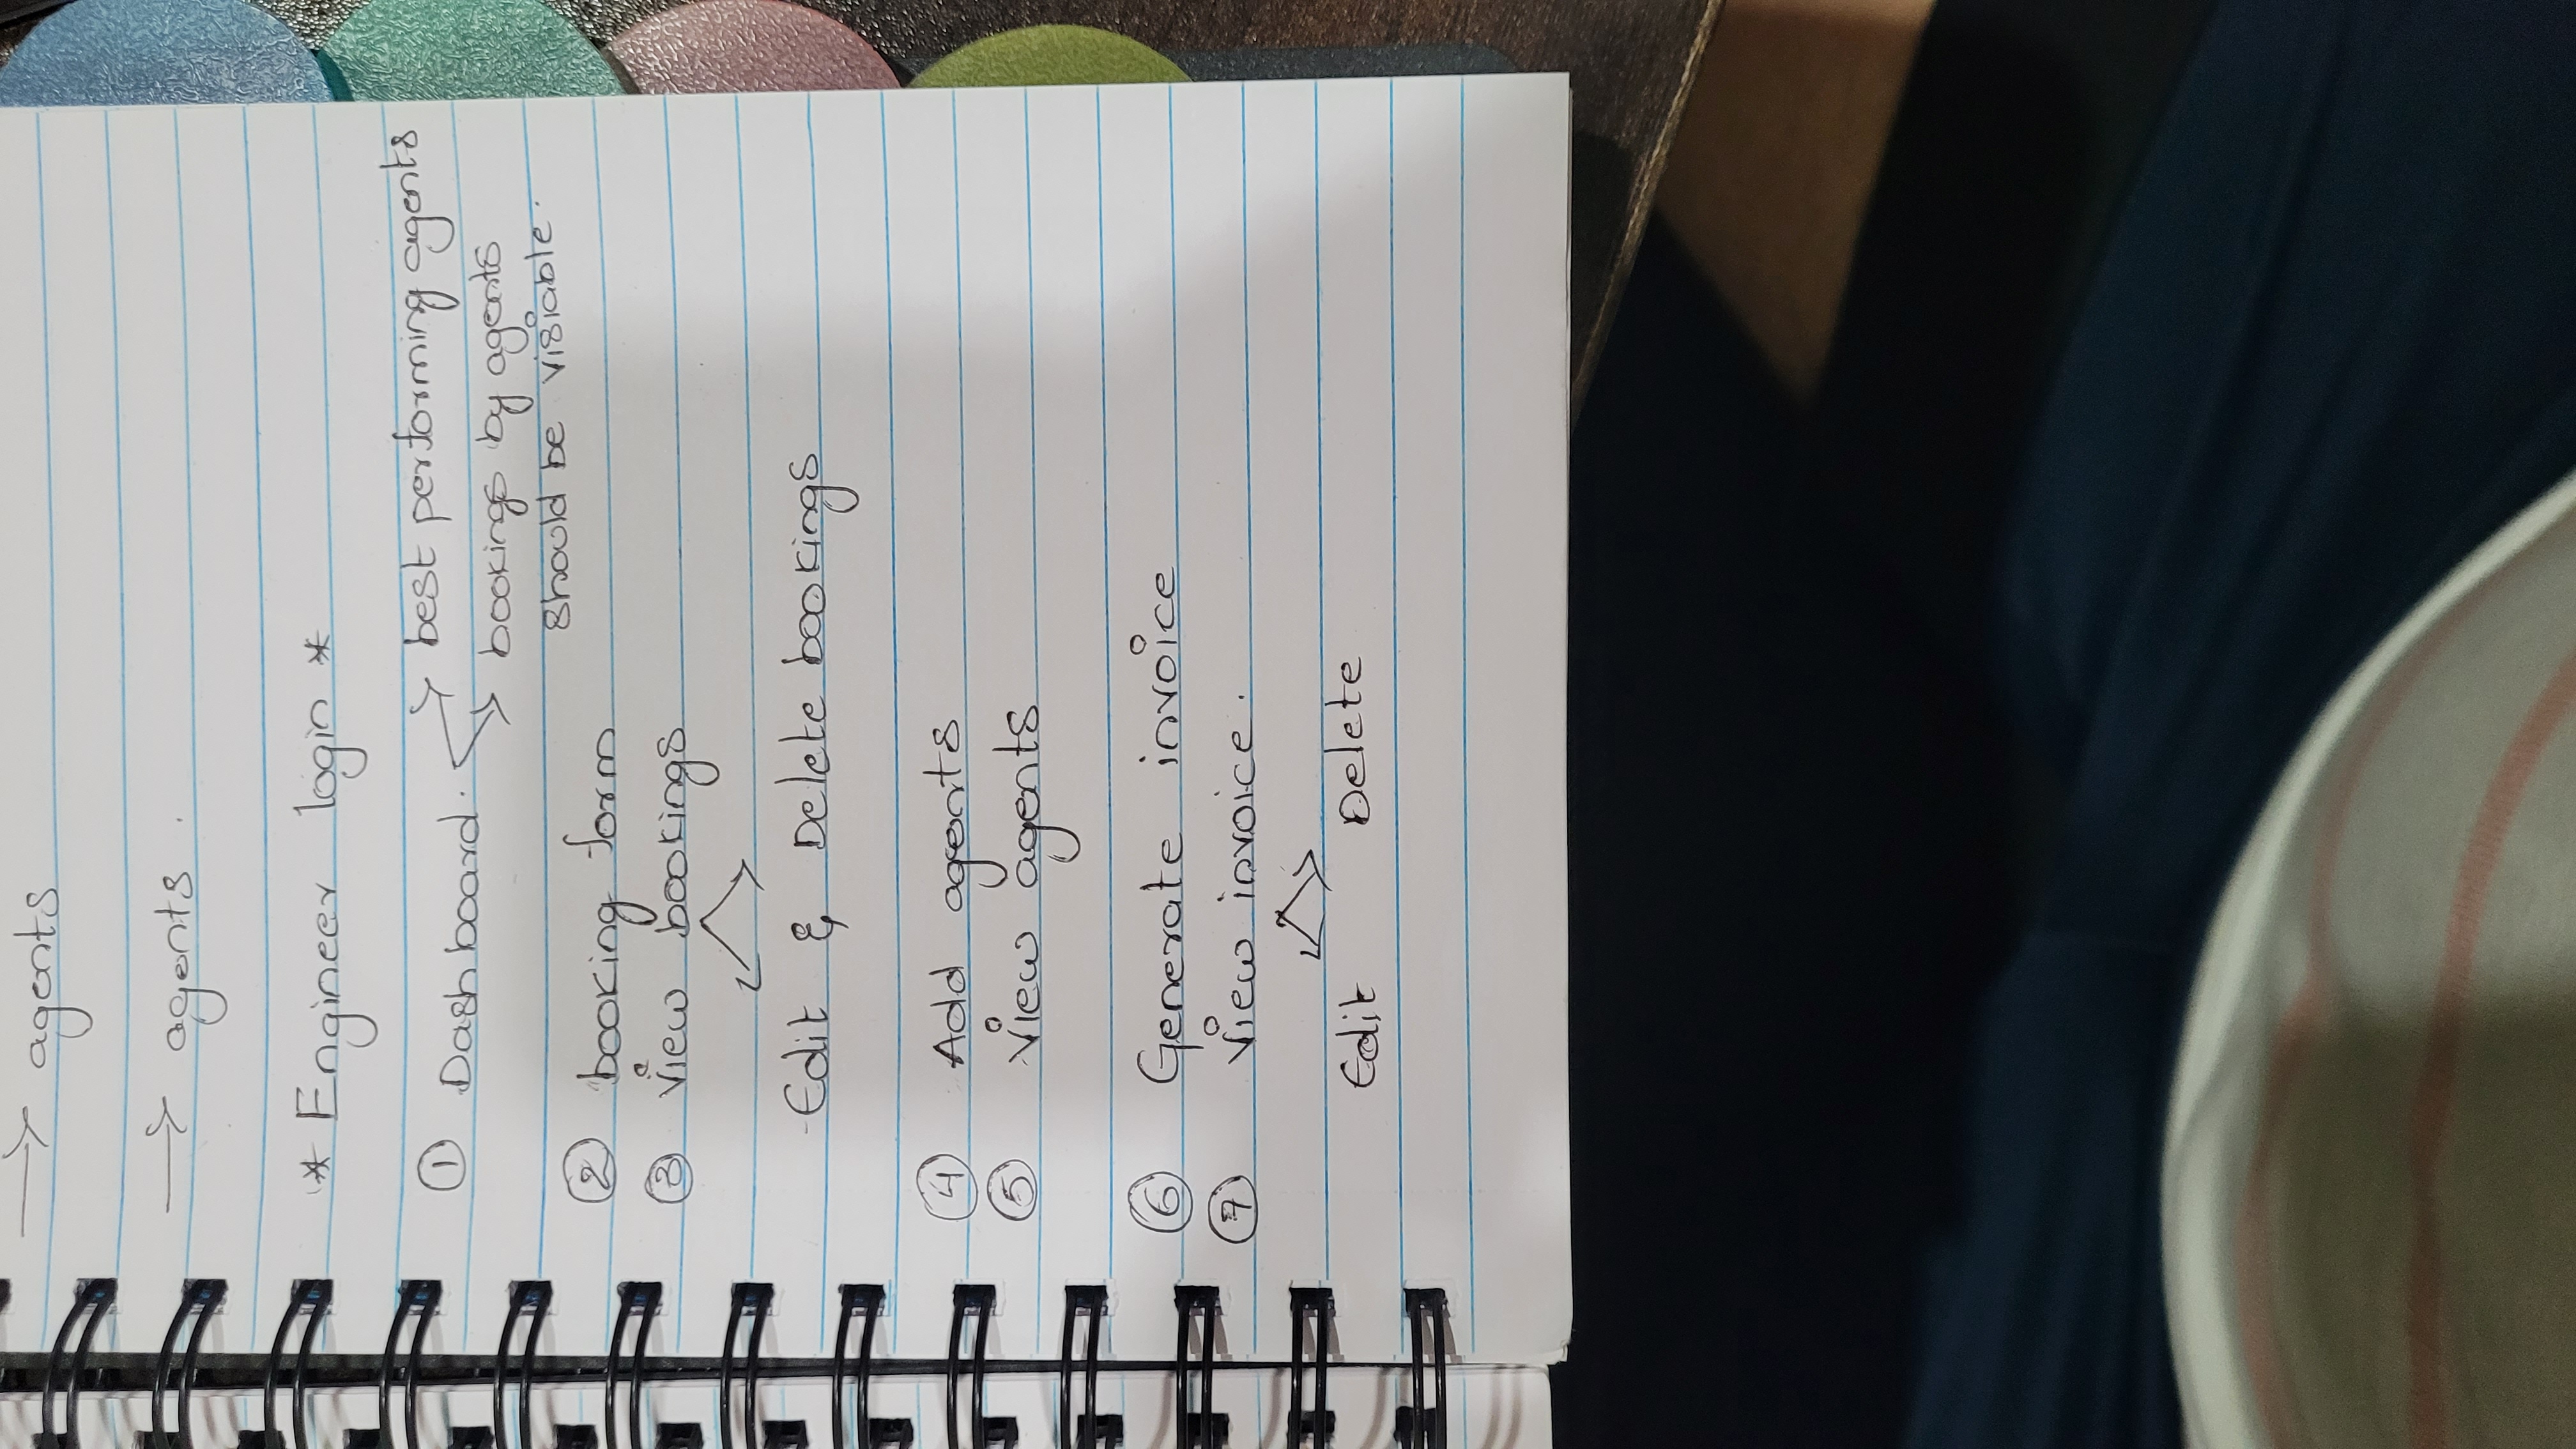 → agents
→ agents .
* Engineer login *
① Dashboard. → best performing agents
→ bookings by agents
should be visiable.
② booking form
③ View bookings
Edit & Delete bookings
④ Add agents
⑤ View agents
⑥ Generate invoice
⑦ View invoice.
Edit Delete